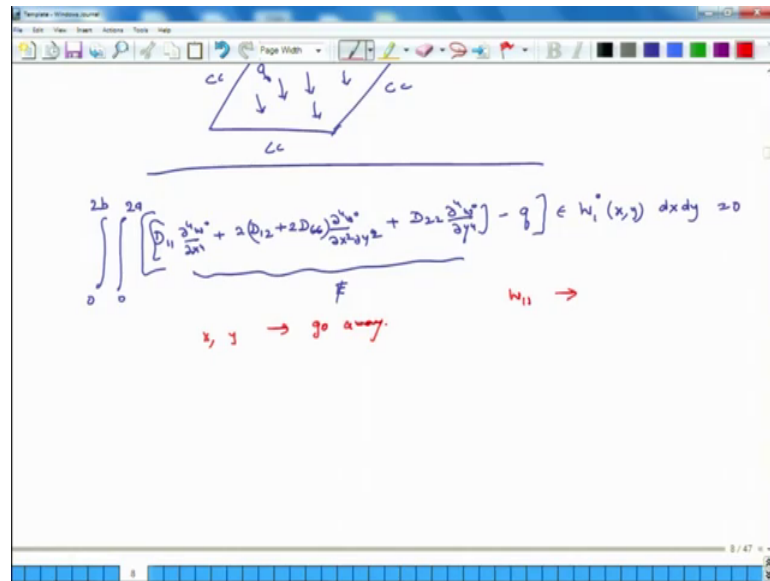 Template - Windows Journal
File Edit View Insert Actions Tools Help
Page Width
B I
CC q CC
CC
∫₀^2b ∫₀^2a [[D₁₁ ∂⁴w°/∂x⁴ + 2(D₁₂ + 2D₆₆) ∂⁴w°/∂x²∂y² + D₂₂ ∂⁴w°/∂y⁴] - q] ε W₁°(x,y) dx dy = 0
W₁₁ →
x, y → go away.
8 / 47
8